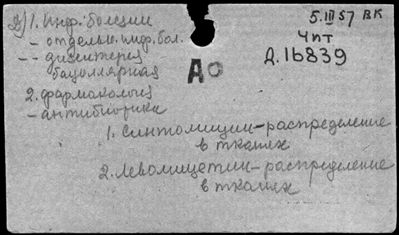 2) 1. Инф. болезни
5.III 57 ВК
– отдельн. инф. бол.
Чпт
-- дизентерия
Д.16839
бациллярная
До
2. фармакология
– антибиотики
1. Синтомицин – распределение
в тканях
2. Левомицетин – распределение
в тканях